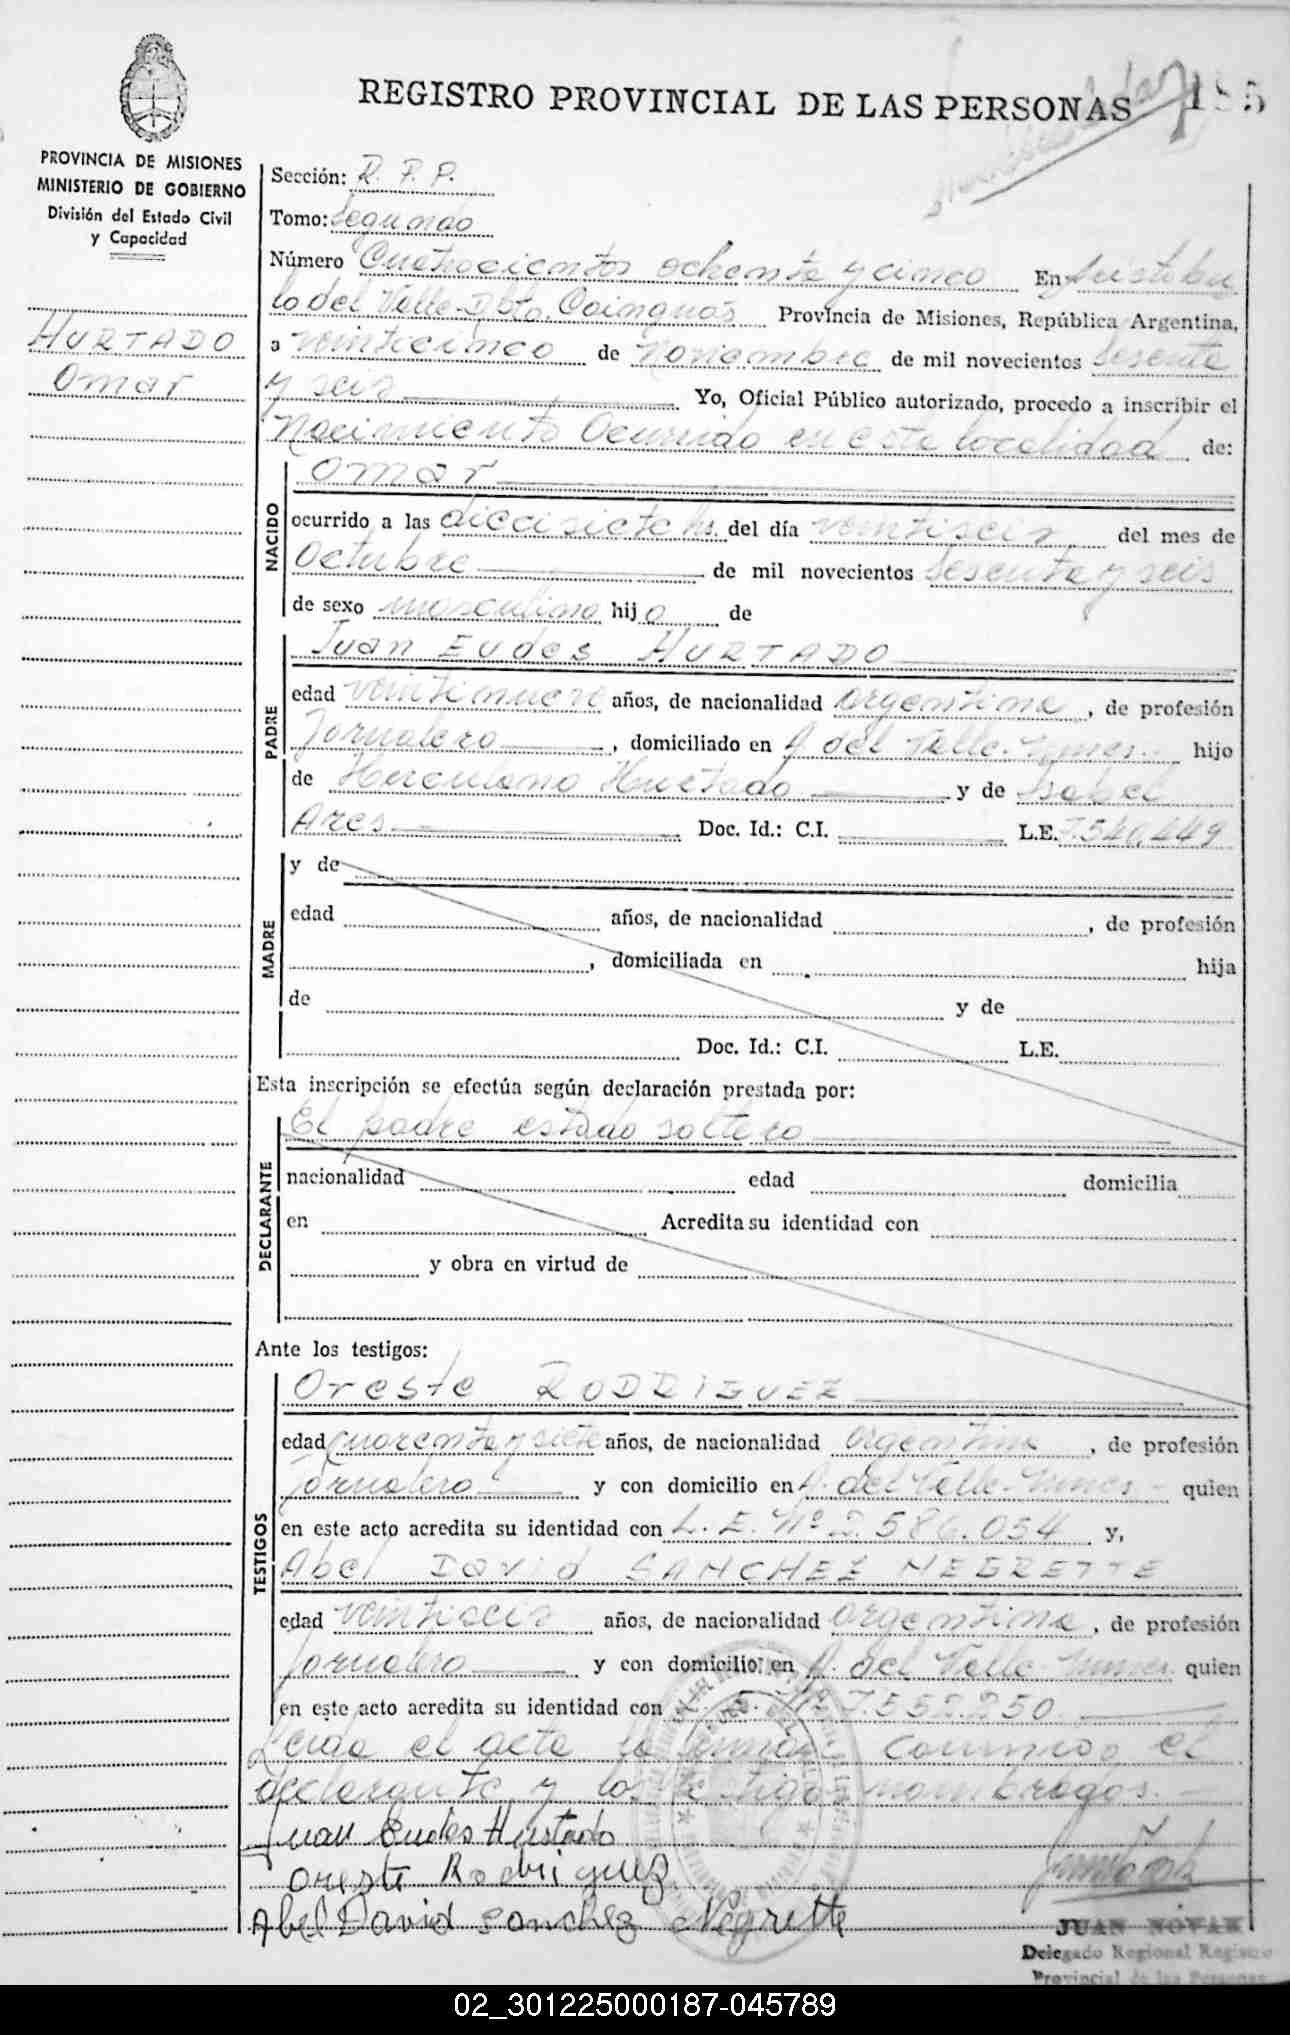 REGISTRO PROVINCIAL DE LAS PERSONAS
185
PROVINCIA DE MISIONES
MINISTERIO DE GOBIERNO
División del Estado Civil
y Capacidad
HURTADO
Omar
Sección: R. P. P.
Tomo: Segundo
Número Cuatrocientos ochenta y cinco En Aristóbu
lo del Valle-Dpto. Cainguás Provincia de Misiones, República Argentina,
a veinticinco de Noviembre de mil novecientos sesenta
y seis Yo, Oficial Público autorizado, procedo a inscribir el
Nacimiento Ocurrido en esta localidad de:
NACIDO
Omar
ocurrido a las diecisiete hs. del día veintiseis del mes de
Octubre de mil novecientos sesenta y seis
de sexo masculino hijo de
PADRE
Juan Eudes HURTADO
edad veintinueve años, de nacionalidad argentina, de profesión
Jornalero, domiciliado en A. del Valle-Mnes. hijo
de Herculano Hurtado y de Isabel
Ares Doc. Id.: C.I. L.E. 7.540.449
MADRE
y de
edad años, de nacionalidad , de profesión
, domiciliada en hija
de y de
Doc. Id.: C.I. L.E.
Esta inscripción se efectúa según declaración prestada por:
DECLARANTE
El padre estado soltero
nacionalidad edad domicilia
en Acredita su identidad con
y obra en virtud de
Ante los testigos:
TESTIGOS
Oreste RODRIGUEZ
edad cuarenta y siete años, de nacionalidad argentina, de profesión
Jornalero y con domicilio en A. del Valle-Mnes - quien
en este acto acredita su identidad con L. E. Nº 2.586.054 y,
Abel David SANCHEZ NEGRETTE
edad veintiseis años, de nacionalidad argentina, de profesión
Jornalero y con domicilio: en A. del Valle Mnes. quien
en este acto acredita su identidad con L. E. Nº 7.552.250
Leida el acta la firman conmigo el
declarante y los testigos nombrados.
Juan Eudes Hurtado
Oreste Rodriguez
Abel David Sanchez Negrette
JUAN NOVAK
Delegado Regional Registro
Provincial de las Personas
02_301225000187-045789